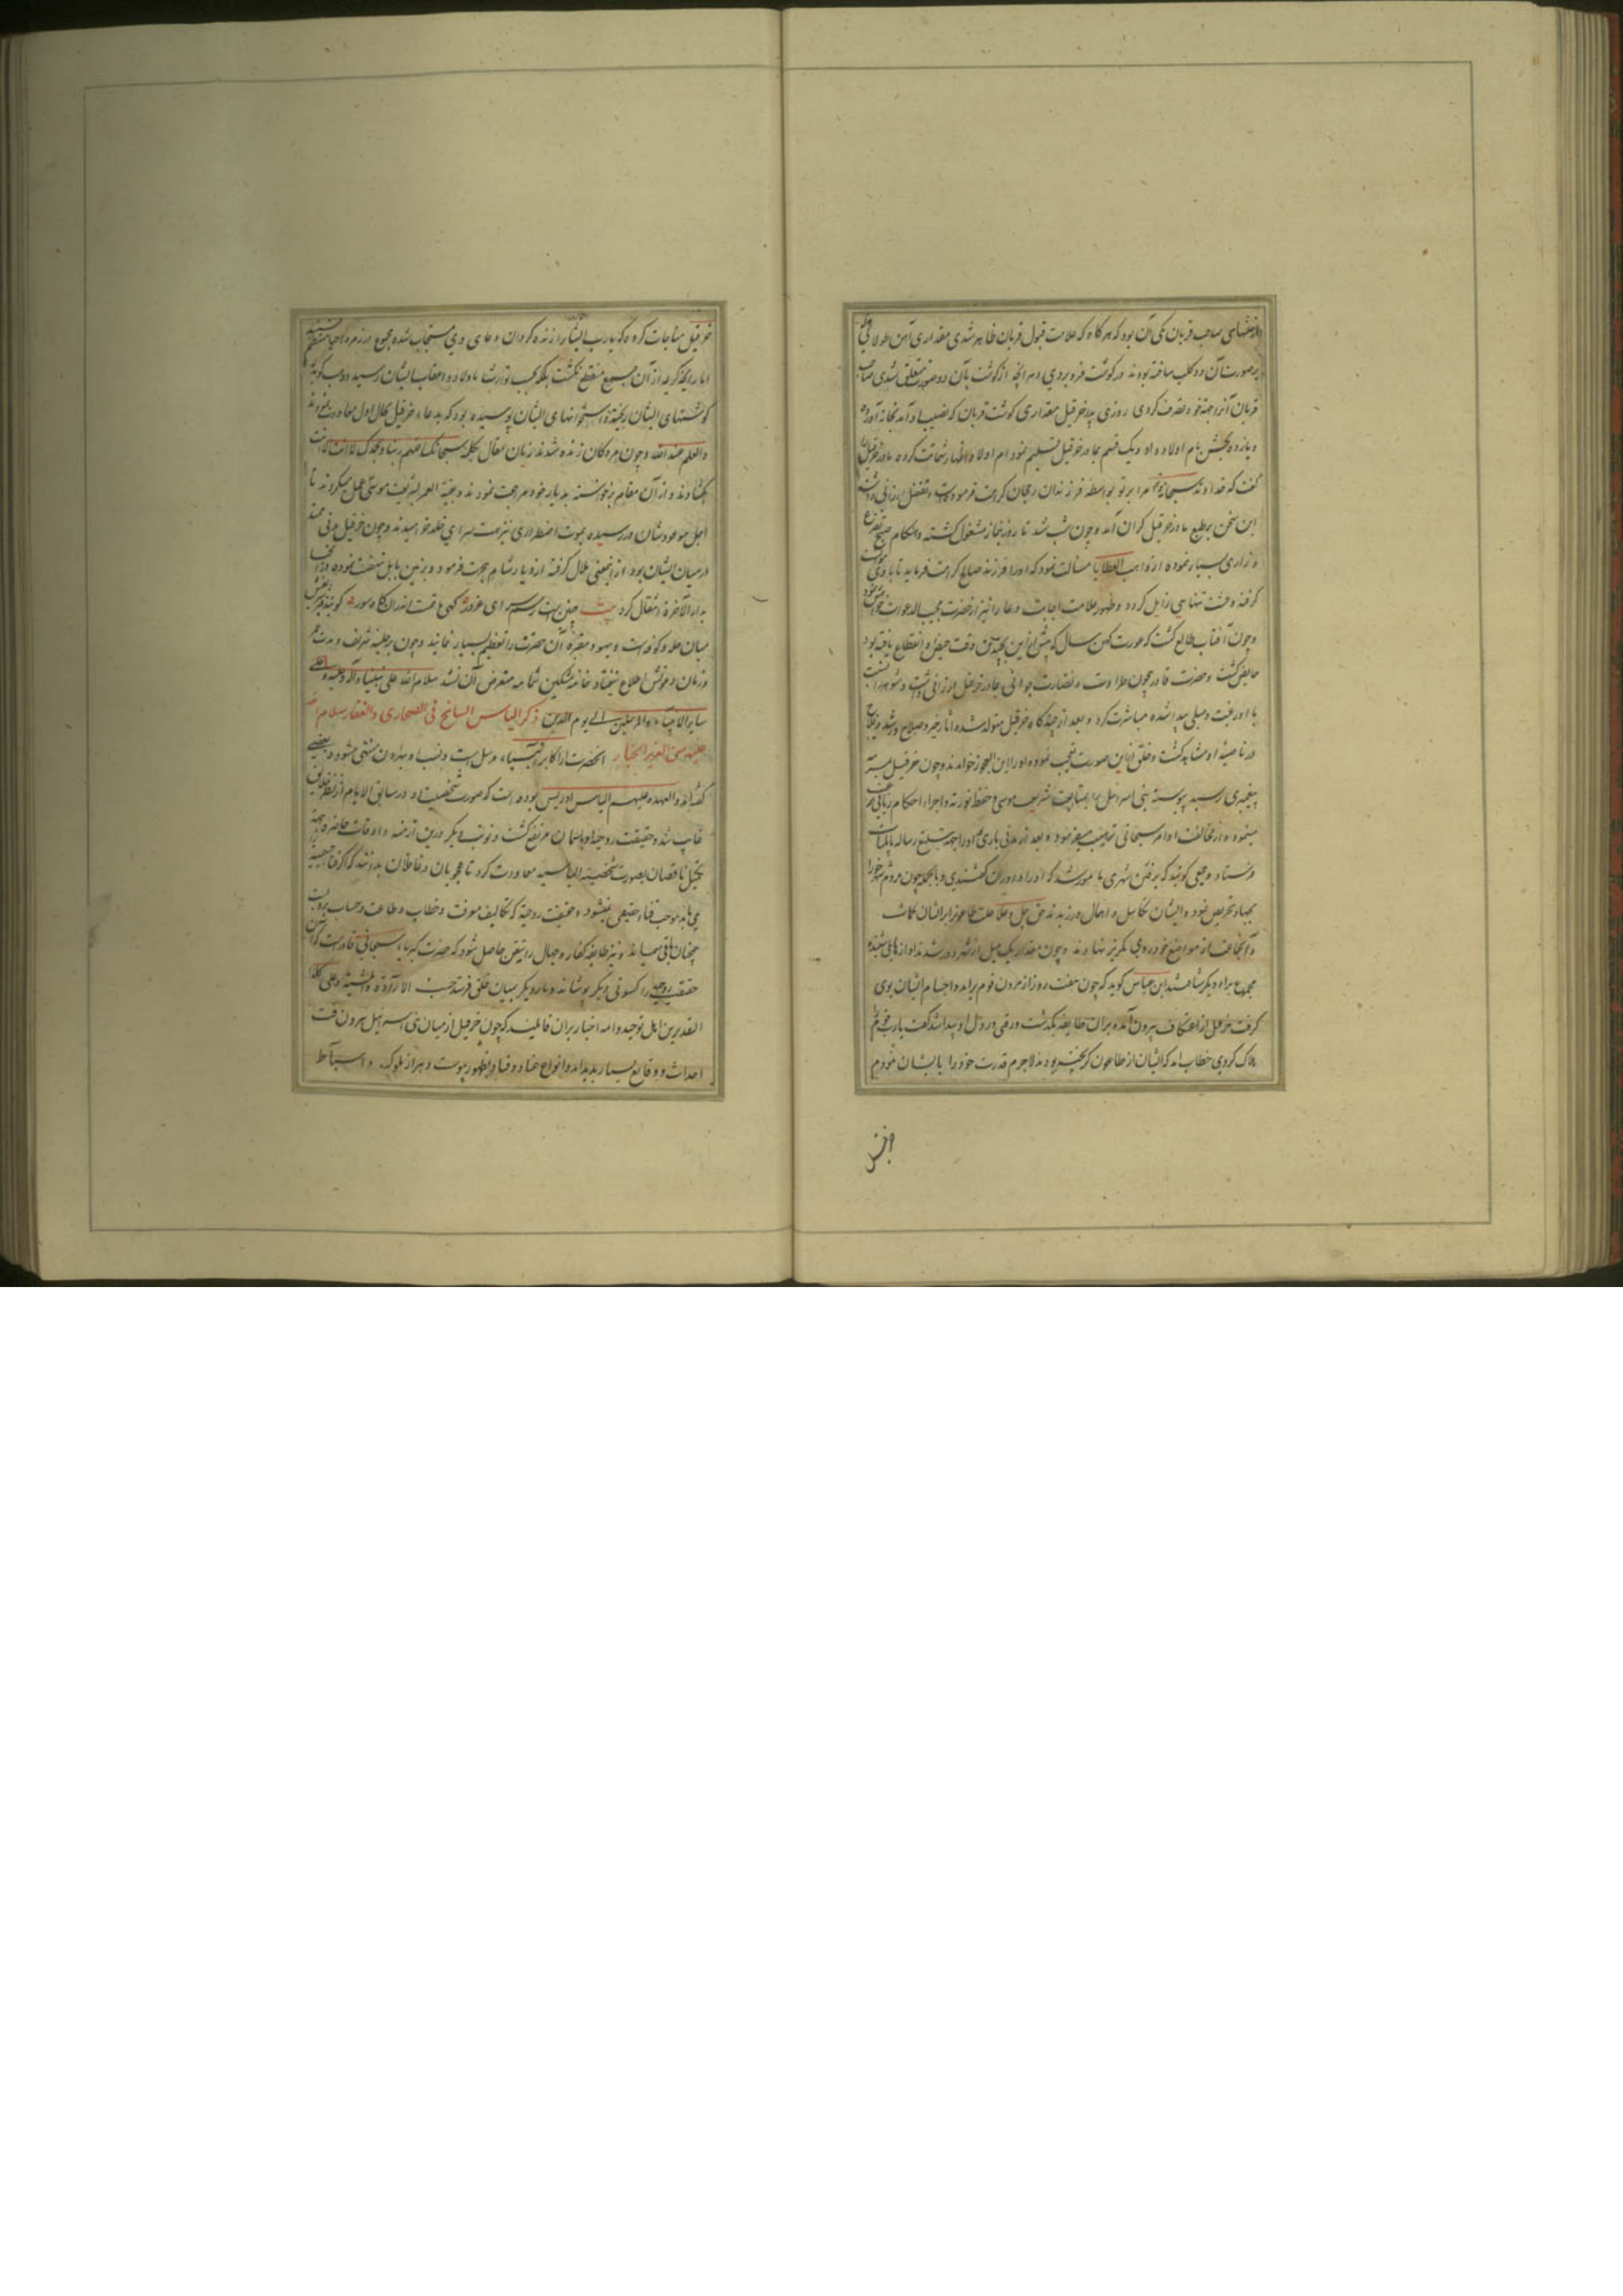 صاحب قربان یکی آن بود که هر کاه که علامت قبول قربان ظاهر شدی مقداری آهن طولانی
بر صورت آن دو کلب ساخته بودند در کوشت فرو بردی و هر انچه از کوشت بآن دو صورت متعلق شدی صاحب
قربان آنرا جهة خود تصرف کردی روزی پدر خرقیل مقداری کوشت قربان که نصیب او آمد بخانه آورده
و یازده بخش بام اولاد داد و یک قسم بمادر خرقیل تسلیم نمود ام اولاد اظهار شماتت کرده مادر خرقیل را
کفت که خداوند سبحانه مرا بر تو بواسطه فرزندان رجحان کرامت فرموده و تفضل ارزانی داشته
این سخن بر طبع مادر خرقیل کران آمد و چون شب شد تا روز بنماز مشغول کشته و هنکام صبح تضرع
و زاری بسیار نموده از واهب العطایا مسألت نمود که او را فرزند صالح کرامت فرماید تا با وی
کرفته وحشت تنهایی زایل کردد و ظهور علامت اجابت دعا را نیز از حضرت مجیب الدعوات
و چون آفتاب طالع کشت که عورت کهن سال که پیش ازین بچندین وقت حیض او انقطاع یافته بود
حایض کشت و حضرت قادر بیچون طراوت و نضارت جوانی بمادر خرقیل ارزانی داشت و شوهر
با او رغبت و میلی پیدا شده مباشرت کرد و بعد از چندکاه خرقیل متولد شده آثار خیر و صلاح و رشد و فلاح
در ناصیهٔ او مشاهد کشت و خلق ازین صورت تعجب نموده او را ابن العجوز خواندند و چون خرقیل بمرتبهٔ
پیغمبری رسید پیوسته بنی اسرائیل را بمتابعت شریعت موسی و حفظ توریة و اجراء احکام ربانی
مینمود و از مخالفت اوامر سبحانی میفرمود و بعد از مدتی باری او را جهت تبلیغ رساله
فرستاد و جمعی کویند که برفتن شهری مامور شد که او را کفتندی و بالجمله چون مردم شهر را
بجهاد تحریص نمود و ایشان تکاسل و اهمال ورزیدند حق جل و علا علت طاعون بر ایشان کماشت
و آنجماعت از مواضع خود روی بکریز نهادند و چون مقدار یک میل از شهر دور شدند آوازهایل شنیده
مجموع براه دیکر شتافتند ابن عباس کوید که چون هفت روز از مردن قوم برآمد و اجسام ایشان بوی
کرفت خرقیل از اعتکاف بیرون آمده بران طایفه بکذشت و رقتی در دل او پیدا شد کفت یا رب قوم مرا
هلاک کردی خطاب آمد که ایشان از طاعون کریخته بودند لاجرم قدرت خود را بایشان نمودم
خرقیل مناجات کرده که یا رب ایشان را زنده کردان دعای وی مستجاب شده مجموع در زمره احیا
اما رایحه کریهه از آن جمع منقطع نکشت بلکه بحسب توارث باولاد و اعقاب ایشان رسید
کوشتهای ایشان ریخته و استخوانهای ایشان پوسیده بود که بدعاء خرقیل بحال اول معاودت نمودند
والعلم عند الله و چون مردکان زنده شدند زبان مقال بکلمه سبحانک اللهم ربنا و بحمدک لا اله الا انت
بکشادند و از آن مقام برخواسته بدیار خود مراجعت نمودند و بقیة العمر بشریعت موسی عمل میکردند تا
اجل موعودشان در رسیده بموت اضطراری نیز بهت سرای خلد خرامیدند و چون خرقیل مدتی
در میان ایشان بود از بلال کرفته از دیار شام هجرت فرمود و بزمین بابل نهضت نموده
بدار الآخرة انتقال کرد بیت چنین است رسم سرای غرور کهی ماتمست اندران کاه سور
میان حله و کوفه است و یهود مقبرهٔ آن حضرت را تعظیم بسیار نمایند و چون بر حلیهٔ شریف و مدت عمر
و زمان دعوتش اطلاع نیفتاد خامه مشکین شمامه متعرض آن نشد سلام الله علی نبینا و آله و علیه و علی
سایر الانبیاء والمرسلین الی یوم الدین ذکر الیاس السایح فی الصحاری والقفار سلام الله
علیه من العزیز الجبار آنحضرت از اکابر انبیاء و رسل است و نسب او بهارون منتهی میشود و بعضی
کفته‌اند والعهدة علیهم الیاس ادریس بوده است که صورت شخصیت او در سابق الایام از نظر خلایق
غایب شد و حقیقت روحیه او باسمان مرتفع کشت و نوبت دیکر درین ازمنه و اوقات حاضره بجهة
تکمیل ناقصان بصورت شخصیهٔ الیاسیه معاودت کرد تا محجوبان و غافلان بدانند که اکر
موجب فناء حقیقی نمیشود و حقیقت روحیه که تکالیف معرفت و خطاب و طاعت و حساب بروست
همچنان باقی میماند و نیز طایفه کفار و جهال را یقین حاصل شود که حضرت کبریاء سبحانی قادرست که آن
حقیقت روحیه را کسوتی دیکر پوشاند و بار دیکر بمیان خلق فرستد حسب الارادة والمشیة و علی کلا
التقدیرین اهل توحید و ائمه اخبار بران قایلیند که چون خرقیل از میان بنی اسرائیل بیرون رفت
احداث و وقایع بسیار پدید آمد و انواع عناد و فساد بظهور پیوست و هر از ملوک و اسباط